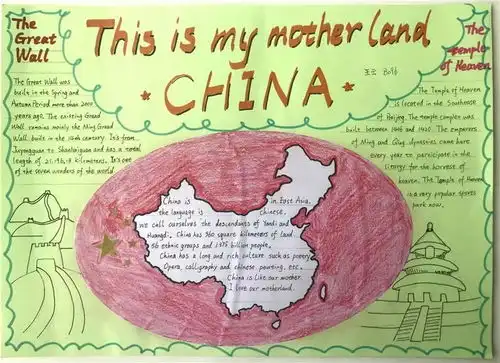 This is my mother land
CHINA
The
Great
Wall
The Great Wall was
built in the Spring and
Autumn Period more than 2000
years ago. The existing Great
Wall remains mainly the Ming Great
Wall built in the 14th century. It's from
Juyongguan to Shanhaiguan and has a total
length of 21,196.18 kilometers. It's one
of the seven wonders of the world
The
temple
of Heaven
The Temple of Heaven
is located in the Southeast
of Beijing. The temple complex was
built between 1406 and 1420. The emperors
of Ming and Qing dynasties came here
every year to participate in the
liturgy for the harvest of
heaven. The Temple of Heaven
is a very popular sports
park now.
China is in East Asia.
the language is Chinese.
We call ourselves the descendants of Yandi and
Huangdi. China has 960 square kilometers of land
56 ethnic groups and 1.375 billion people.
China has a long and rich culture such as poetry
Opera, calligraphy and chinese painting, etc.
China is like our mother.
I love our motherland.